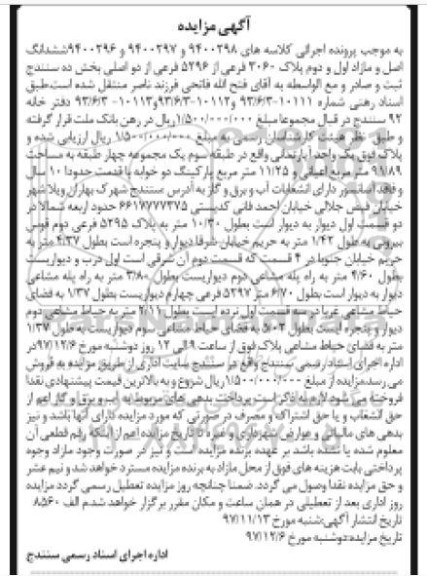 آگهی مزایده
به موجب پرونده اجرائی کلاسه های ۹۴۰۰۲۹۸ و ۹۴۰۰۲۹۷ و ۹۴۰۰۲۹۶ ششدانگ
اصل و مازاد اول و دوم پلاک ۳۰۶۰ فرعی از ۵۲۹۶ فرعی از دو اصلی بخش ده سنندج
ثبت و صادر و مع الواسطه به آقای فتح الله فاتحی فرزند ناصر منتقل شده است.طبق
اسناد رهنی شماره ۱۰۱۱۱-۹۳/۶/۳ و ۱۰۱۱۲-۹۳/۶/۳ و ۱۰۱۱۳-۹۳/۶/۳ دفتر خانه
۹۲ سنندج در قبال مجموعا مبلغ ۱/۵۰۰/۰۰۰/۰۰۰ ریال در رهن بانک ملت قرار گرفته
و طبق نظر هیئت کارشناسان رسمی به مبلغ ۱/۵۰۰/۰۰۰/۰۰۰ ریال ارزیابی شده و
پلاک فوق یک واحد آپارتمانی واقع در طبقه سوم یک مجموعه چهار طبقه به مساحت
۹۱/۸۹ متر مربع اعیانی و ۱۱/۲۵ متر مربع پارکینگ دو خوابه با قدمت حدودا ۱۰ سال
و فاقد آسانسور دارای انشعابات آب و برق و گاز به آدرس سنندج شهرک بهاران ویلا شهر
خیابان جلالی خیابان احمد خانی کدپستی ۶۶۱۷۷۷۷۳۷۵ حدود اربعه شمالا در
دو قسمت اول دیوار به دیوار است بطول ۱۰/۳۰ متر به پلاک ۵۲۹۵ فرعی دوم قوسی
بیرونی به طول ۱/۴۲ متر به حریم خیابان شرقا دیوار و پنجره است بطول ۴/۳۷ متر به
حریم خیابان جنوبا در ۴ قسمت که قسمت دوم آن شرقی است اول درب و دیواریست
بطول ۴/۶۰ متر به راه پله مشاعی دوم دیواریست بطول ۳/۸۰ متر به راه پله مشاعی
دیوار به دیوار است بطول ۶/۷۰ متر ۵۲۹۷ فرعی چهارم دیواریست بطول ۱/۳۷ به فضای
حیاط مشاعی غربا در سه قسمت اول نرده است بطول ۲/۱۱ متر به حیاط مشاعی دوم
دیوار و پنجره است بطول ۵/۰۳ به فضای حیاط مشاعی سوم دیواریست به طول ۱/۳۷
متر به فضای حیاط مشاعی پلاک فوق از ساعت ۹ الی ۱۲ روز دوشنبه مورخ ۹۷/۱۲/۶ در
اداره اجرای اسناد رسمی سنندج واقع در سنندج سایت اداری از طریق مزایده به فروش
می رسد.مزایده از مبلغ ۱/۵۰۰/۰۰۰/۰۰۰ ریال شروع و به بالاترین قیمت پیشنهادی نقدا
فروخته می شود.لازم به ذکر است پرداخت بدهی های مربوط به آب و برق و گاز اعم از
حق انشعاب و یا حق اشتراک و مصرف در صورتی که مورد مزایده دارای آنها باشد و نیز
بدهی های مالیاتی و عوارض شهرداری و غیره تا تاریخ مزایده اعم از اینکه رقم قطعی آن
معلوم شده یا نشده باشد بر عهده برنده مزایده است و نیز در صورت وجود مازاد وجوه
پرداختی بابت هزینه های فوق از محل مازاد به برنده مزایده مسترد خواهد شد و نیم عشر
و حق مزایده نقدا وصول می گردد. ضمنا چنانچه روز مزایده تعطیل رسمی گردد مزایده
روز اداری بعد از تعطیلی در همان ساعت و مکان مقرر برگزار خواهد شد.م الف ۸۵۶۰
تاریخ انتشار آگهی:شنبه مورخ ۹۷/۱۱/۱۳
تاریخ مزایده:دوشنبه مورخ ۹۷/۱۲/۶
اداره اجرای اسناد رسمی سنندج